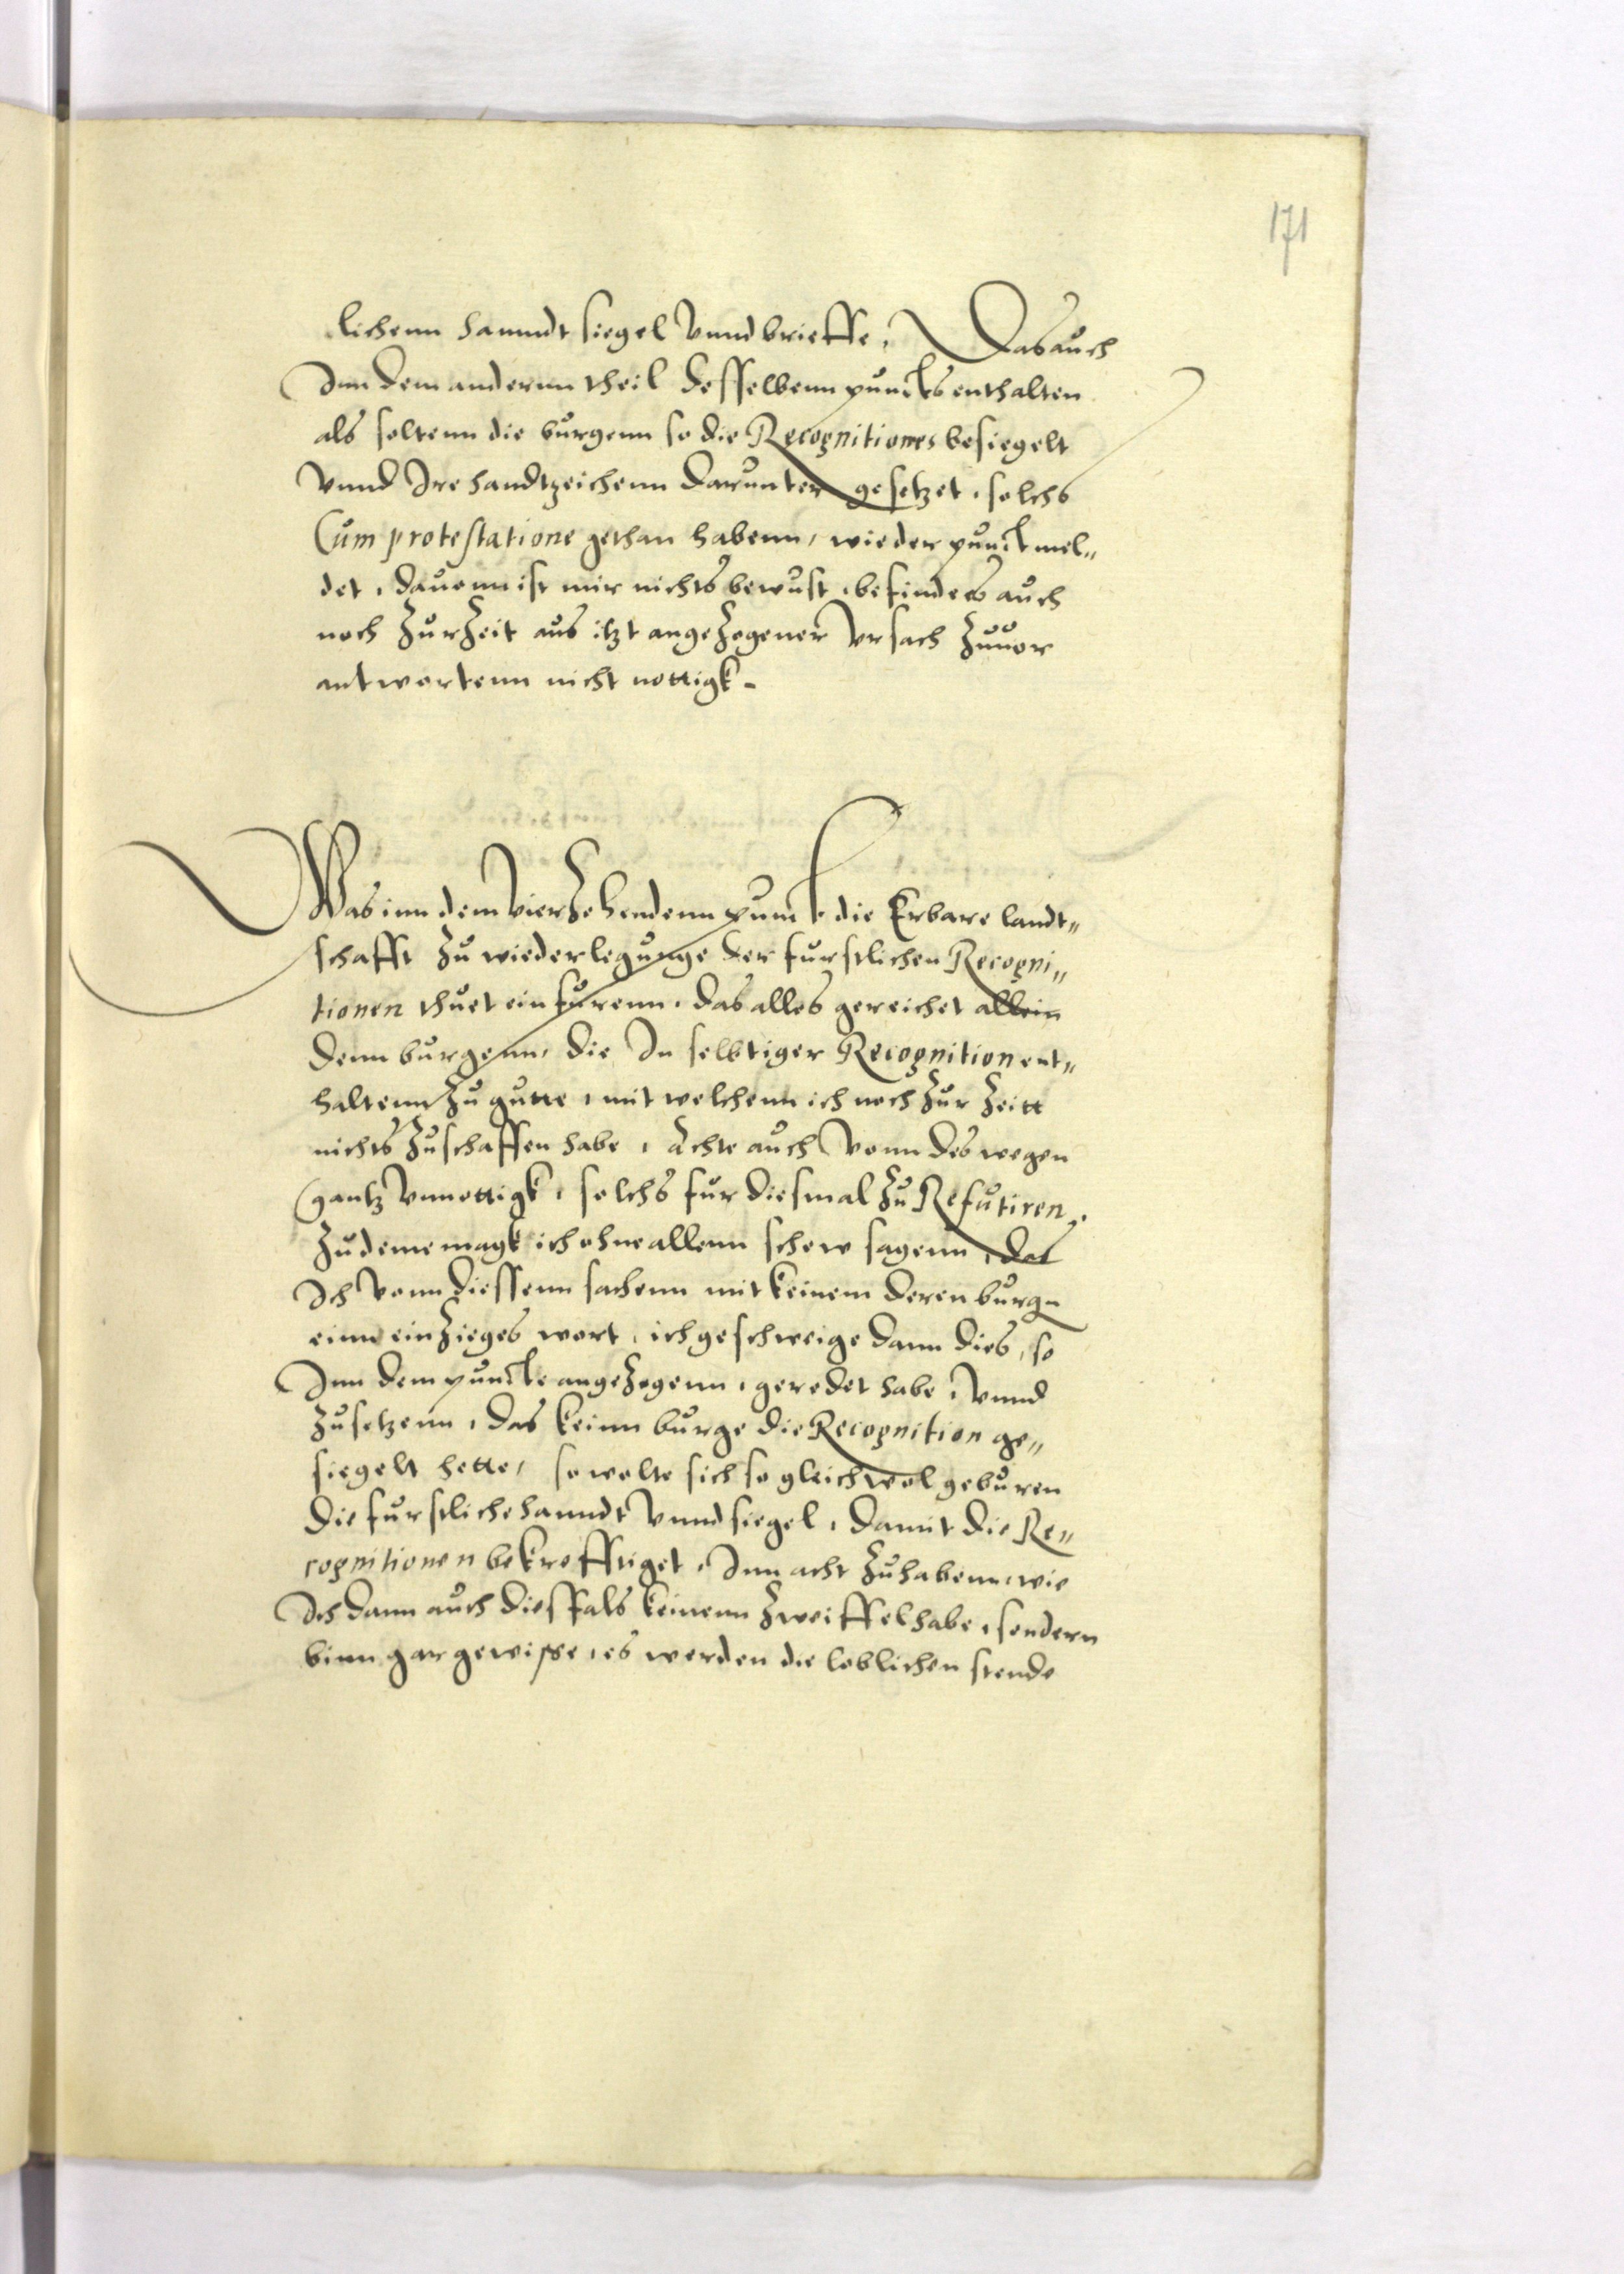 171
lichenn hanndt siegel vnnd brieffe, Das auch
Inn dem andernn theil desselbenn puncts enthalten
als soltenn die burgenn so die Recognitiones besiegelt
vnnd Ire handtzeichenn darunter gesetzet, solchs
Cum protestatione gethan habenn, wie der punct mel„
det, dauonn ist mir nichts bewust, befinde es auch
noch zur Zeit aus itzt angezogener vrsach zuuor
antwortenn nicht nottigk.
Was inn dem vierzehendenn punct die Erbare landt„
schafft zu wiederlegunge der furstlichen Recogni„
tionen thuet einfurenn, das alles gereichet allein
denn burgenn, die In selbtiger Recognition ent„
haltenn zu gutte, mit welchenn ich noch zur Zeitt
nichts zuschaffen habe, Achte auch vonn des wegen
gantz vnnottigk, solchs fur diesmal zu Refutiren,
zu deme magk ich ohne allenn schew sagenn, das
Ich vonn diessenn sachenn mit keinem deren burgn
einn einzieges wort, ich geschweige dann dies, so
Inn dem puncte angezogenn, geredet habe, vnnd
zusetzenn, das keinn burge die Recognition ge„
siegelt hette, so wolte sich so gleichwol geburen
die furstliche hanndt vnnd siegel, damit die Re„
cognitionen bekrefftiget, Inn acht zuhabenn, wie
Ich dann auch diesfals keinenn zweiffel habe, sondern
binn gar gewisse, es werden die loblichen stende